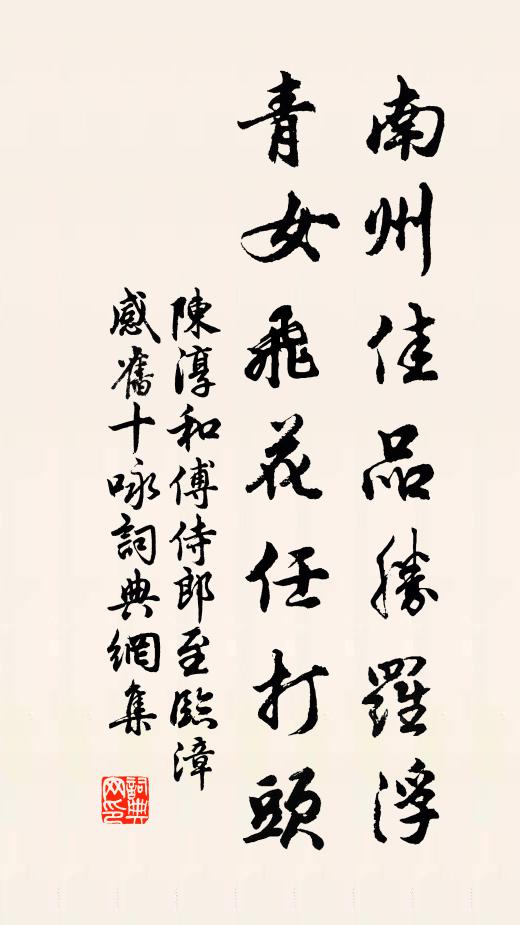 南州佳品勝羅浮
青女飛花任打頭
陳淳和傅侍郎至臨漳
感舊十咏詞典網集
詞典網印